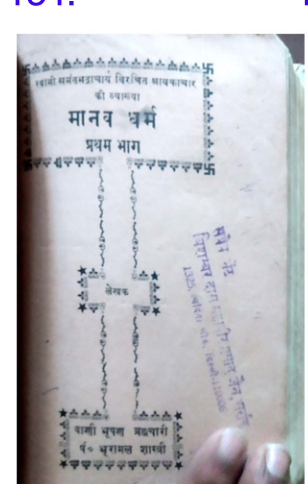 स्वामी समंतभद्राचार्य विरचित श्रावकाचार
की व्याख्या
मानव धर्म
प्रथम भाग
लेखक
वाणी भूषण ब्रह्मचारी
पं० भूरामल शास्त्री
सप्रेम भेंट
जैन